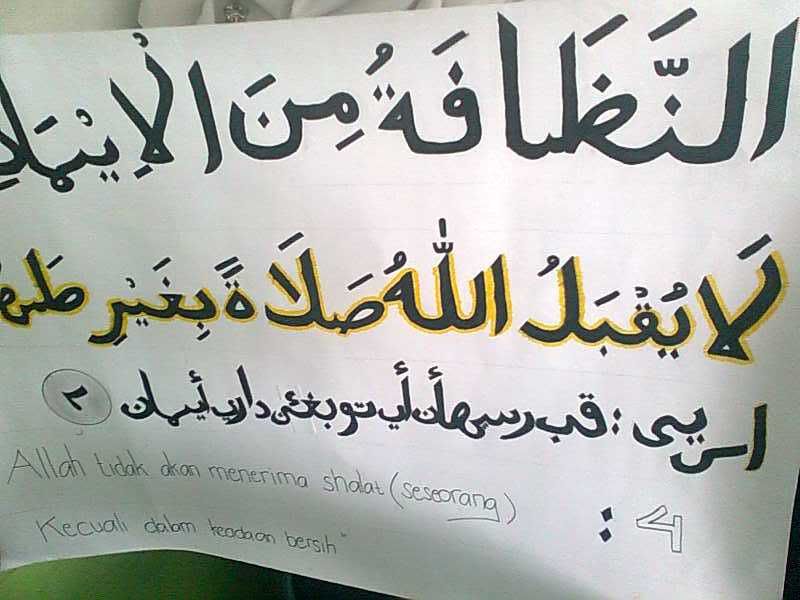 النَّظَافَةُ مِنَ الْاِيْمَا
لَا يُقْبَلُ اللّٰهُ صَلَاةً بِغَيْرِ طَه
: قب رسيهان أيت داري أيمان ٢
Allah tidak akan menerima shalat (seseorang)
Kecuali dalam keadaan bersih"